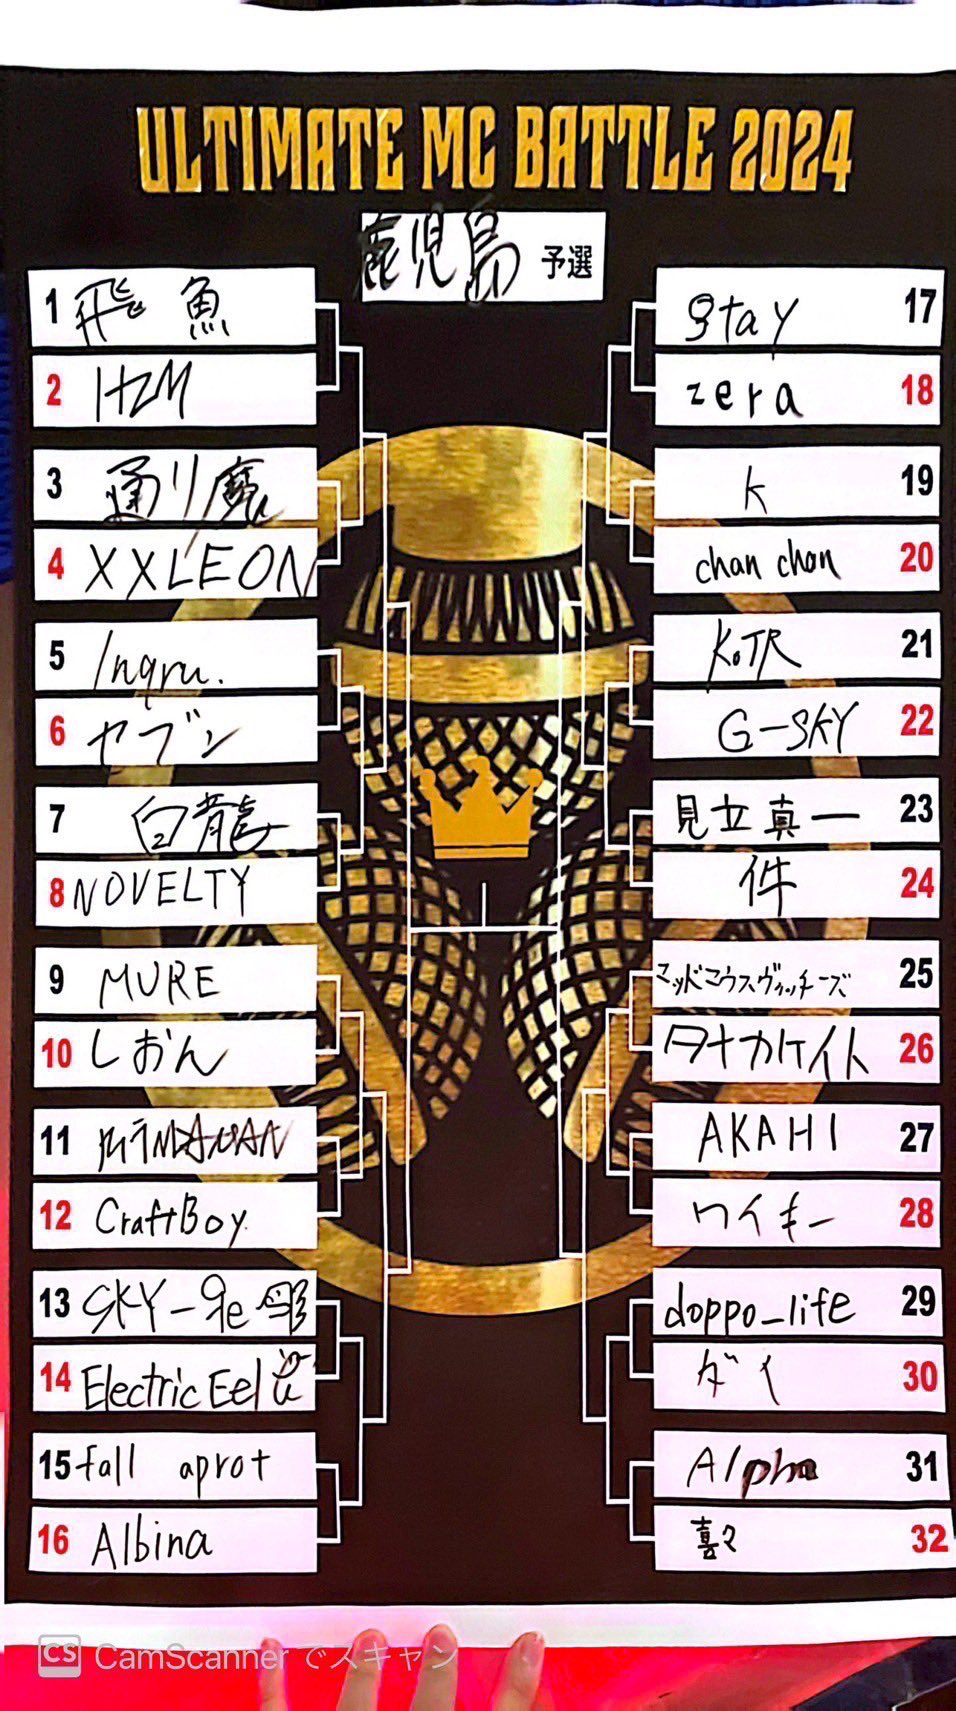 ULTIMATE MC BATTLE 2024
鹿児島 予選
1 飛魚
2 HZM
3 通り魔
4 XXLEON
5 Inqru.
6 セブン
7 白龍
8 NOVELTY
9 MURE
10 しおん
11
12 CraftBoy
13 SKY-
14 Electric Eel
15 fall aprot
16 Albina
gtay 17
zera 18
k 19
chan chan 20
K.TR 21
G-SKY 22
見立真一 23
件 24
マッドマウスヴィッチーズ 25
タナカケイト 26
AKAHI 27
ワイキー 28
doppo_life 29
ダイ 30
Alpha 31
喜々 32
CS CamScanner でスキャン